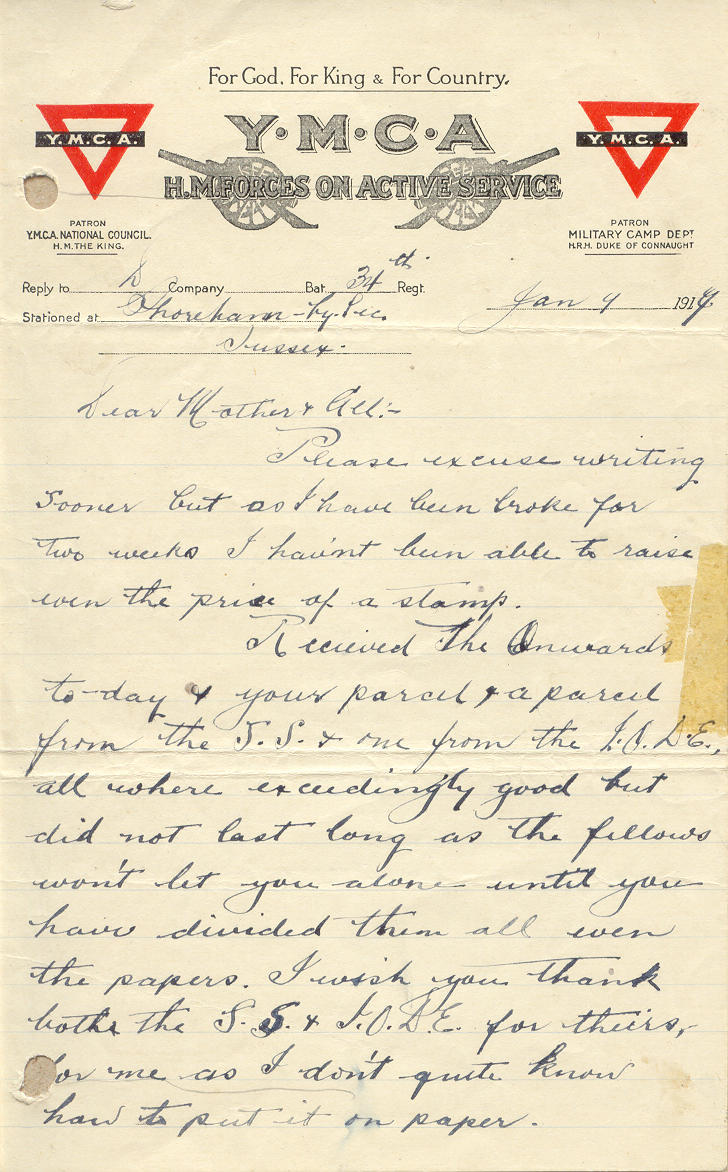 For God, For King & For Country.
Y.M.C.A.
Y·M·C·A
Y.M.C.A.
H.M. FORCES ON ACTIVE SERVICE
PATRON
Y.M.C.A. NATIONAL COUNCIL.
H.M. THE KING.
PATRON
MILITARY CAMP DEPT
H.R.H. DUKE OF CONNAUGHT
Reply to D Company Bat. 34th Regt.
Stationed at Shoreham-by-Sea. Jan 9 1917
Sussex.
Dear Mother & All:-
Please excuse writing
sooner but as I have been broke for
two weeks I havn't been able to raise
even the price of a stamp.
Recieved the Onwards
to-day & your parcel & a parcel
from the S.S. & one from the I.O.D.E.,
all where exceedingly good but
did not last long as the fellows
won't let you alone until you
have divided them all even
the papers. I wish you thank
both the S.S. & I.O.D.E. for theirs,
for me as I don't quite know
how to put it on paper.